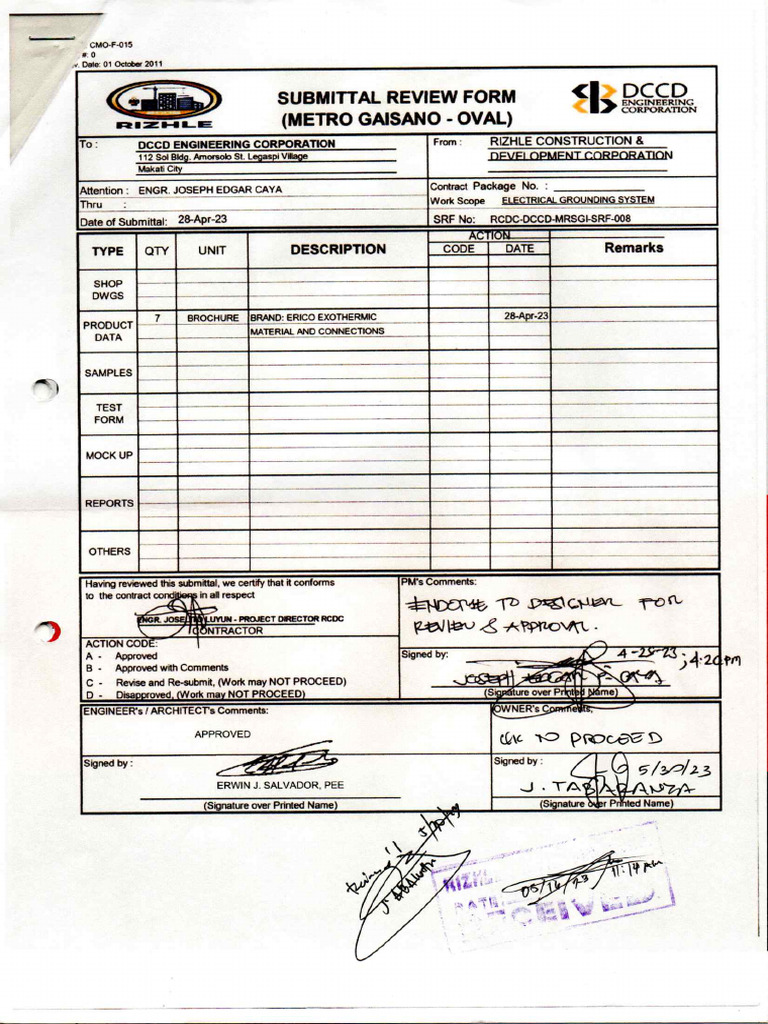 CMO-F-015
#: 0
v. Date: 01 October 2011
RIZHLE
SUBMITTAL REVIEW FORM
(METRO GAISANO - OVAL)
DCCD
ENGINEERING
CORPORATION
To : DCCD ENGINEERING CORPORATION
112 Sol Bldg. Amorsolo St. Legaspi Village
Makati City
From : RIZHLE CONSTRUCTION &
DEVELOPMENT CORPORATION
Attention : ENGR. JOSEPH EDGAR CAYA
Thru :
Date of Submittal: 28-Apr-23
Contract Package No. :
Work Scope ELECTRICAL GROUNDING SYSTEM
SRF No: RCDC-DCCD-MRSGI-SRF-008
TYPE QTY UNIT DESCRIPTION ACTION Remarks
CODE DATE
SHOP
DWGS
PRODUCT
DATA
7 BROCHURE BRAND: ERICO EXOTHERMIC 28-Apr-23
MATERIAL AND CONNECTIONS
SAMPLES
TEST
FORM
MOCK UP
REPORTS
OTHERS
Having reviewed this submittal, we certify that it conforms
to the contract conditions in all respect
ENGR. JOSELITO LUYUN - PROJECT DIRECTOR RCDC
CONTRACTOR
ACTION CODE:
A - Approved
B - Approved with Comments
C - Revise and Re-submit, (Work may NOT PROCEED)
D - Disapproved, (Work may NOT PROCEED)
PM's Comments:
ENDORSE TO DESIGNER FOR
REVIEW & APPROVAL.
Signed by: 4-28-23 ; 4:20 PM
JOSEPH EDGAR P. CAYA
(Signature over Printed Name)
ENGINEER's / ARCHITECT's Comments:
APPROVED
Signed by :
ERWIN J. SALVADOR, PEE
(Signature over Printed Name)
OWNER's Comments,
OK TO PROCEED
Signed by : 5/30/23
J. TABARANZA
(Signature over Printed Name)
RIZHLE
DATE
RECEIVED
05/16/23 11:14 AM